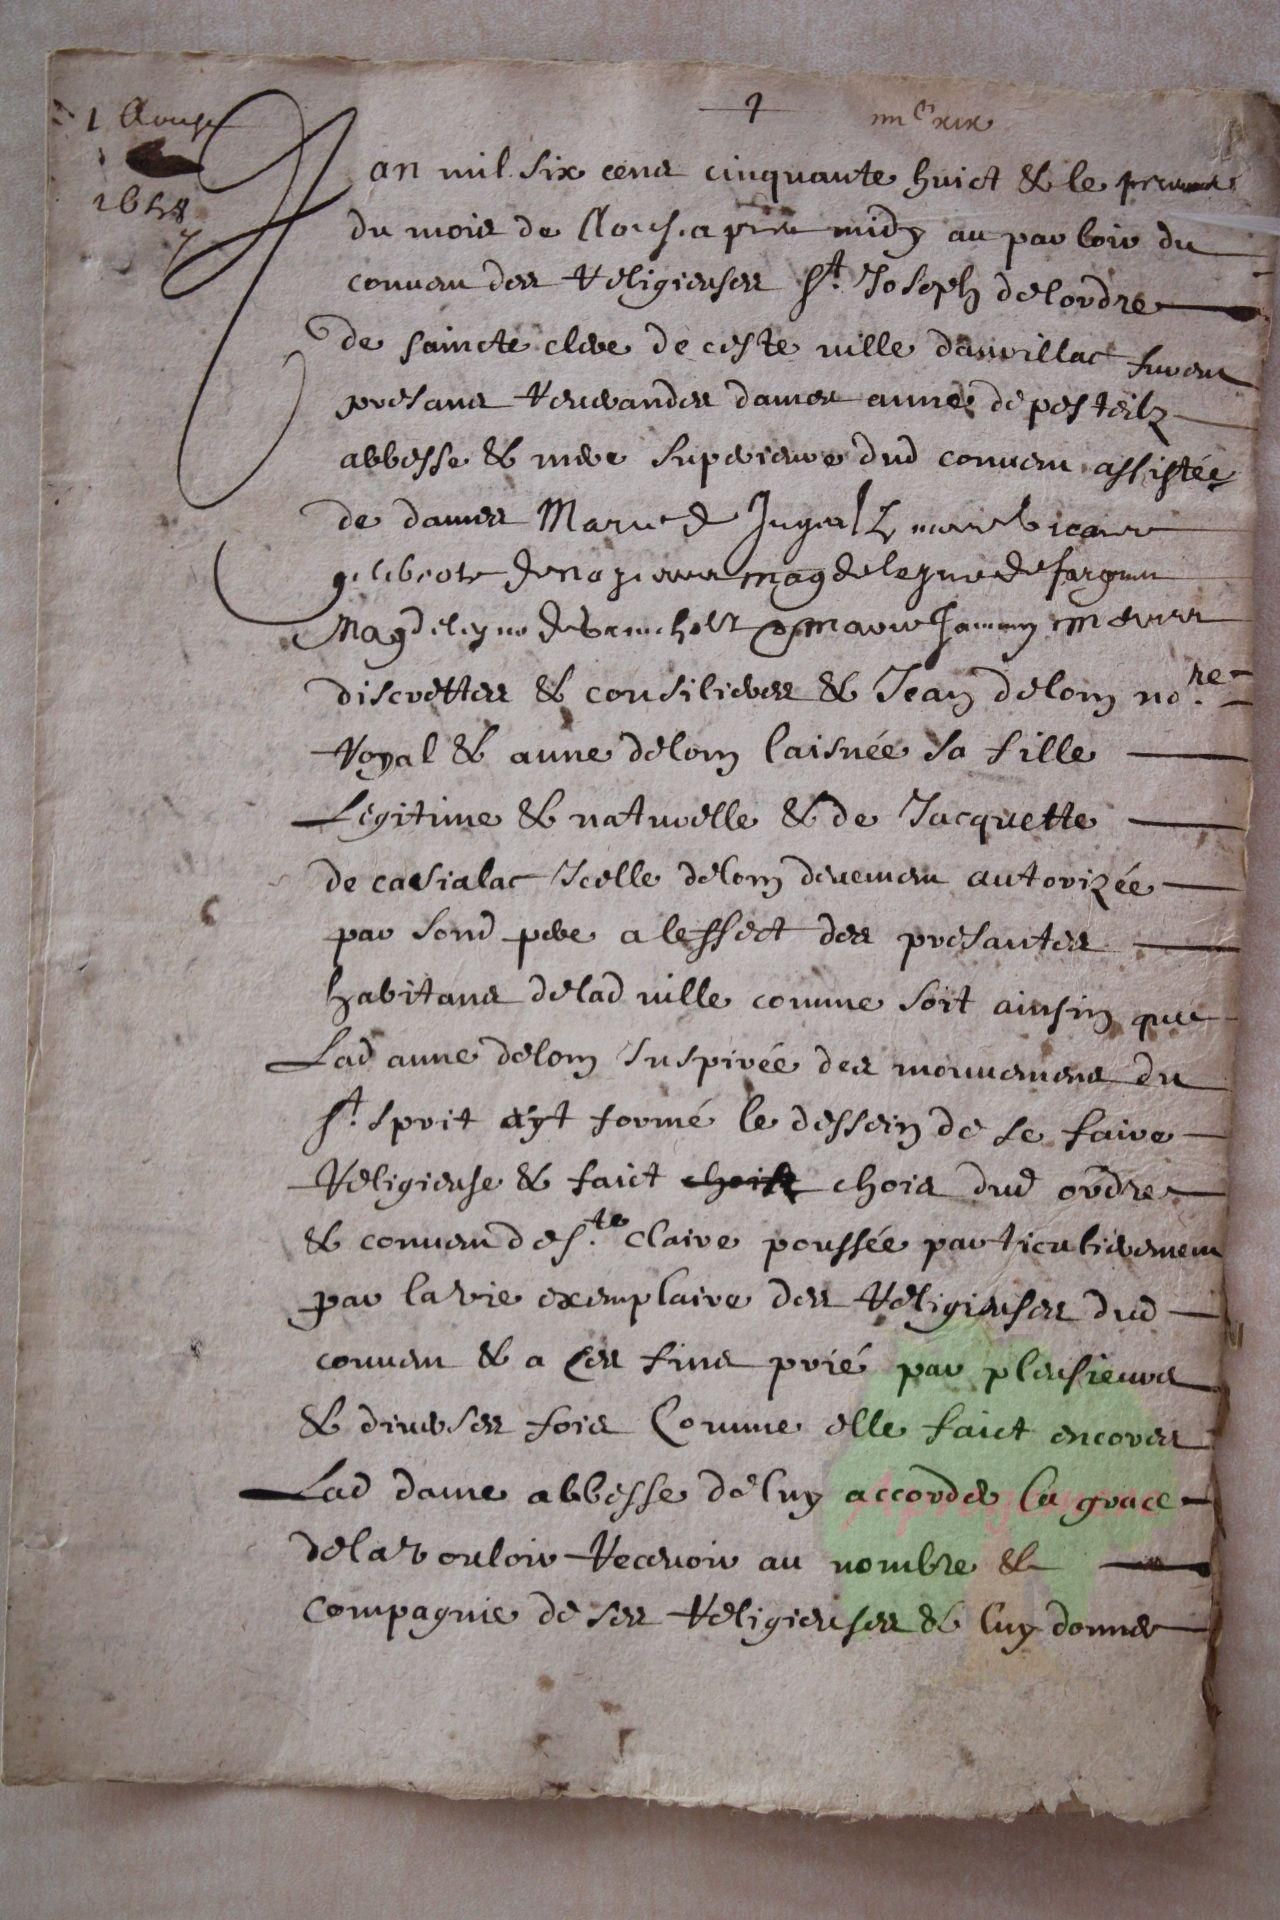 1 Aoust
1658
1
iiii c xix
L an mil six cens cinquante huict & le premier
du mois de Aoust apres midy au parloir du
convem des Religieuses St. Joseph de lordre
de saincte clere de ceste ville daurillac furem
presans Reverandes dames anne de pesteilz
abbesse & mere superieure dud convem assistée
de dames Marie de mere vicaire
magdelayne de fargues
Magdeleyne de & marie meres
discrettes & consilieres & Jean delom nore
Royal & anne delom laisnée sa fille
Legitime & naturelle & de Jacquette
de casialac Icelle delom devemem autorizée
par sond pere a leffect des presantes
habitans delad ville comme soit ainsin que
Lad anne delom Inspirée des mouvemens du
St. sprit ayt formé le dessein de se faire
Religieuse & faict choix chois dud ordre
& convem de Ste Claire poussée particulieremem
par la vie exemplaire des Religieuses dud
convem & a ces fins prié par pleusieurs
& diverses fois Comme elle faict encores
Lad dame abbesse de luy accorder la grace
de la vouloir Recevoir au nombre &
compagnie de ses Religieuses & luy donner